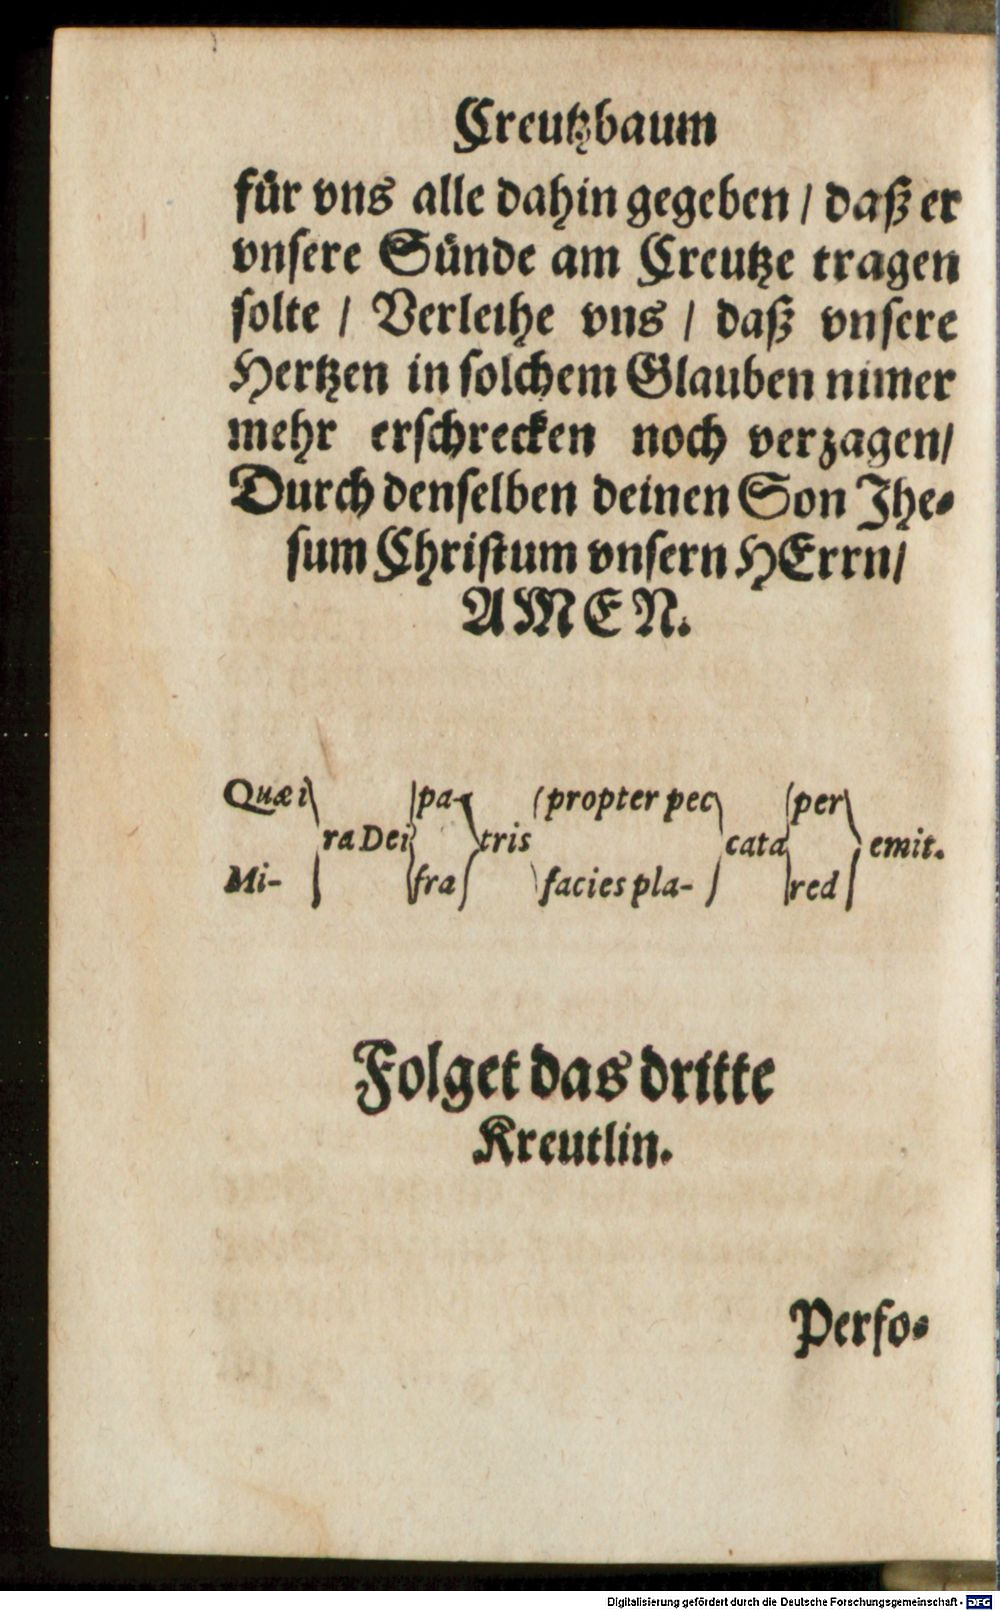 Creutzbaum
für vns alle dahin gegeben / daß er
vnsere Sünde am Creutze tragen
solte / Verleihe vns / daß vnsere
Hertzen in solchem Glauben nimer
mehr erschrecken noch verzagen /
Durch denselben deinen Son Jhe-
sum Christum vnsern HErrn /
AMEN.
Quæ i pa- propter pec per
ra Dei tris cata emit.
Mi- fra facies pla- red
Folget das dritte
Kreutlin.
Perfo-
Digitalisierung gefördert durch die Deutsche Forschungsgemeinschaft - DFG